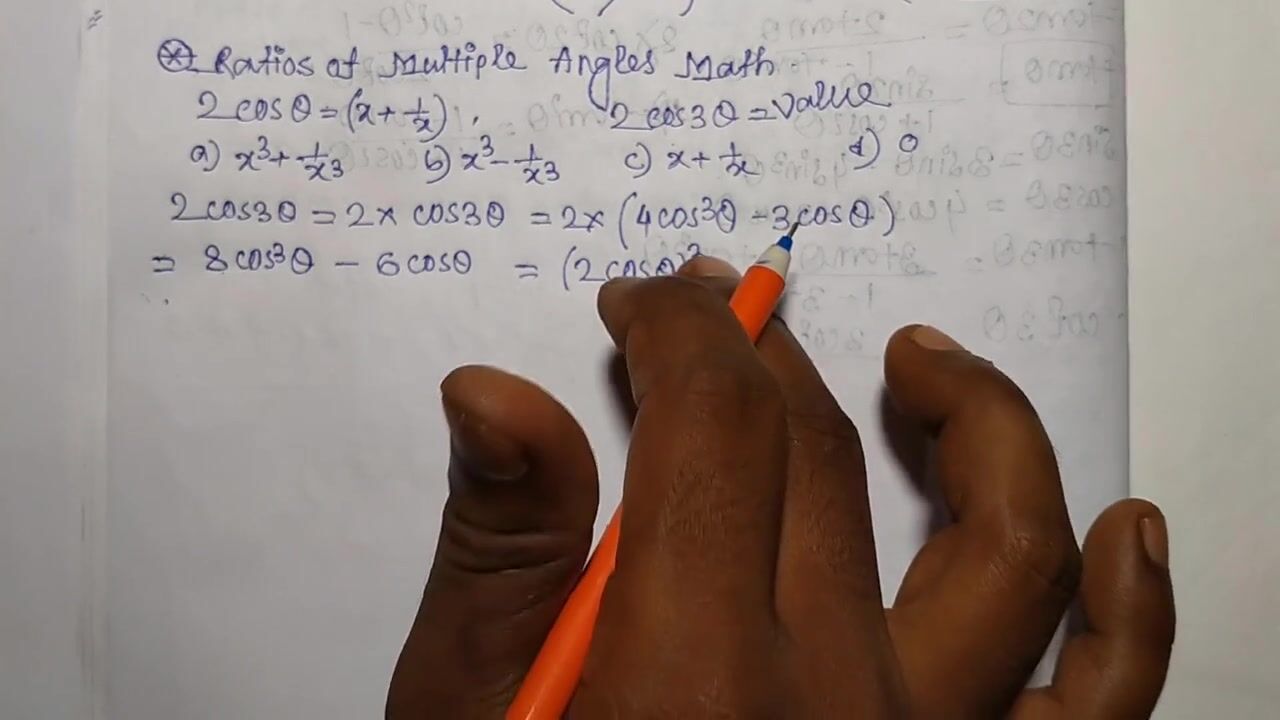 Ratios of Multiple Angles Math.
2cosθ = (x + 1/x). 2cos3θ = value
a) x³ + 1/x³ b) x³ - 1/x³ c) x + 1/x d) 0
2cos3θ = 2 × cos3θ = 2 × (4cos³θ - 3cosθ)
= 8cos³θ - 6cosθ = (2cosθ)³